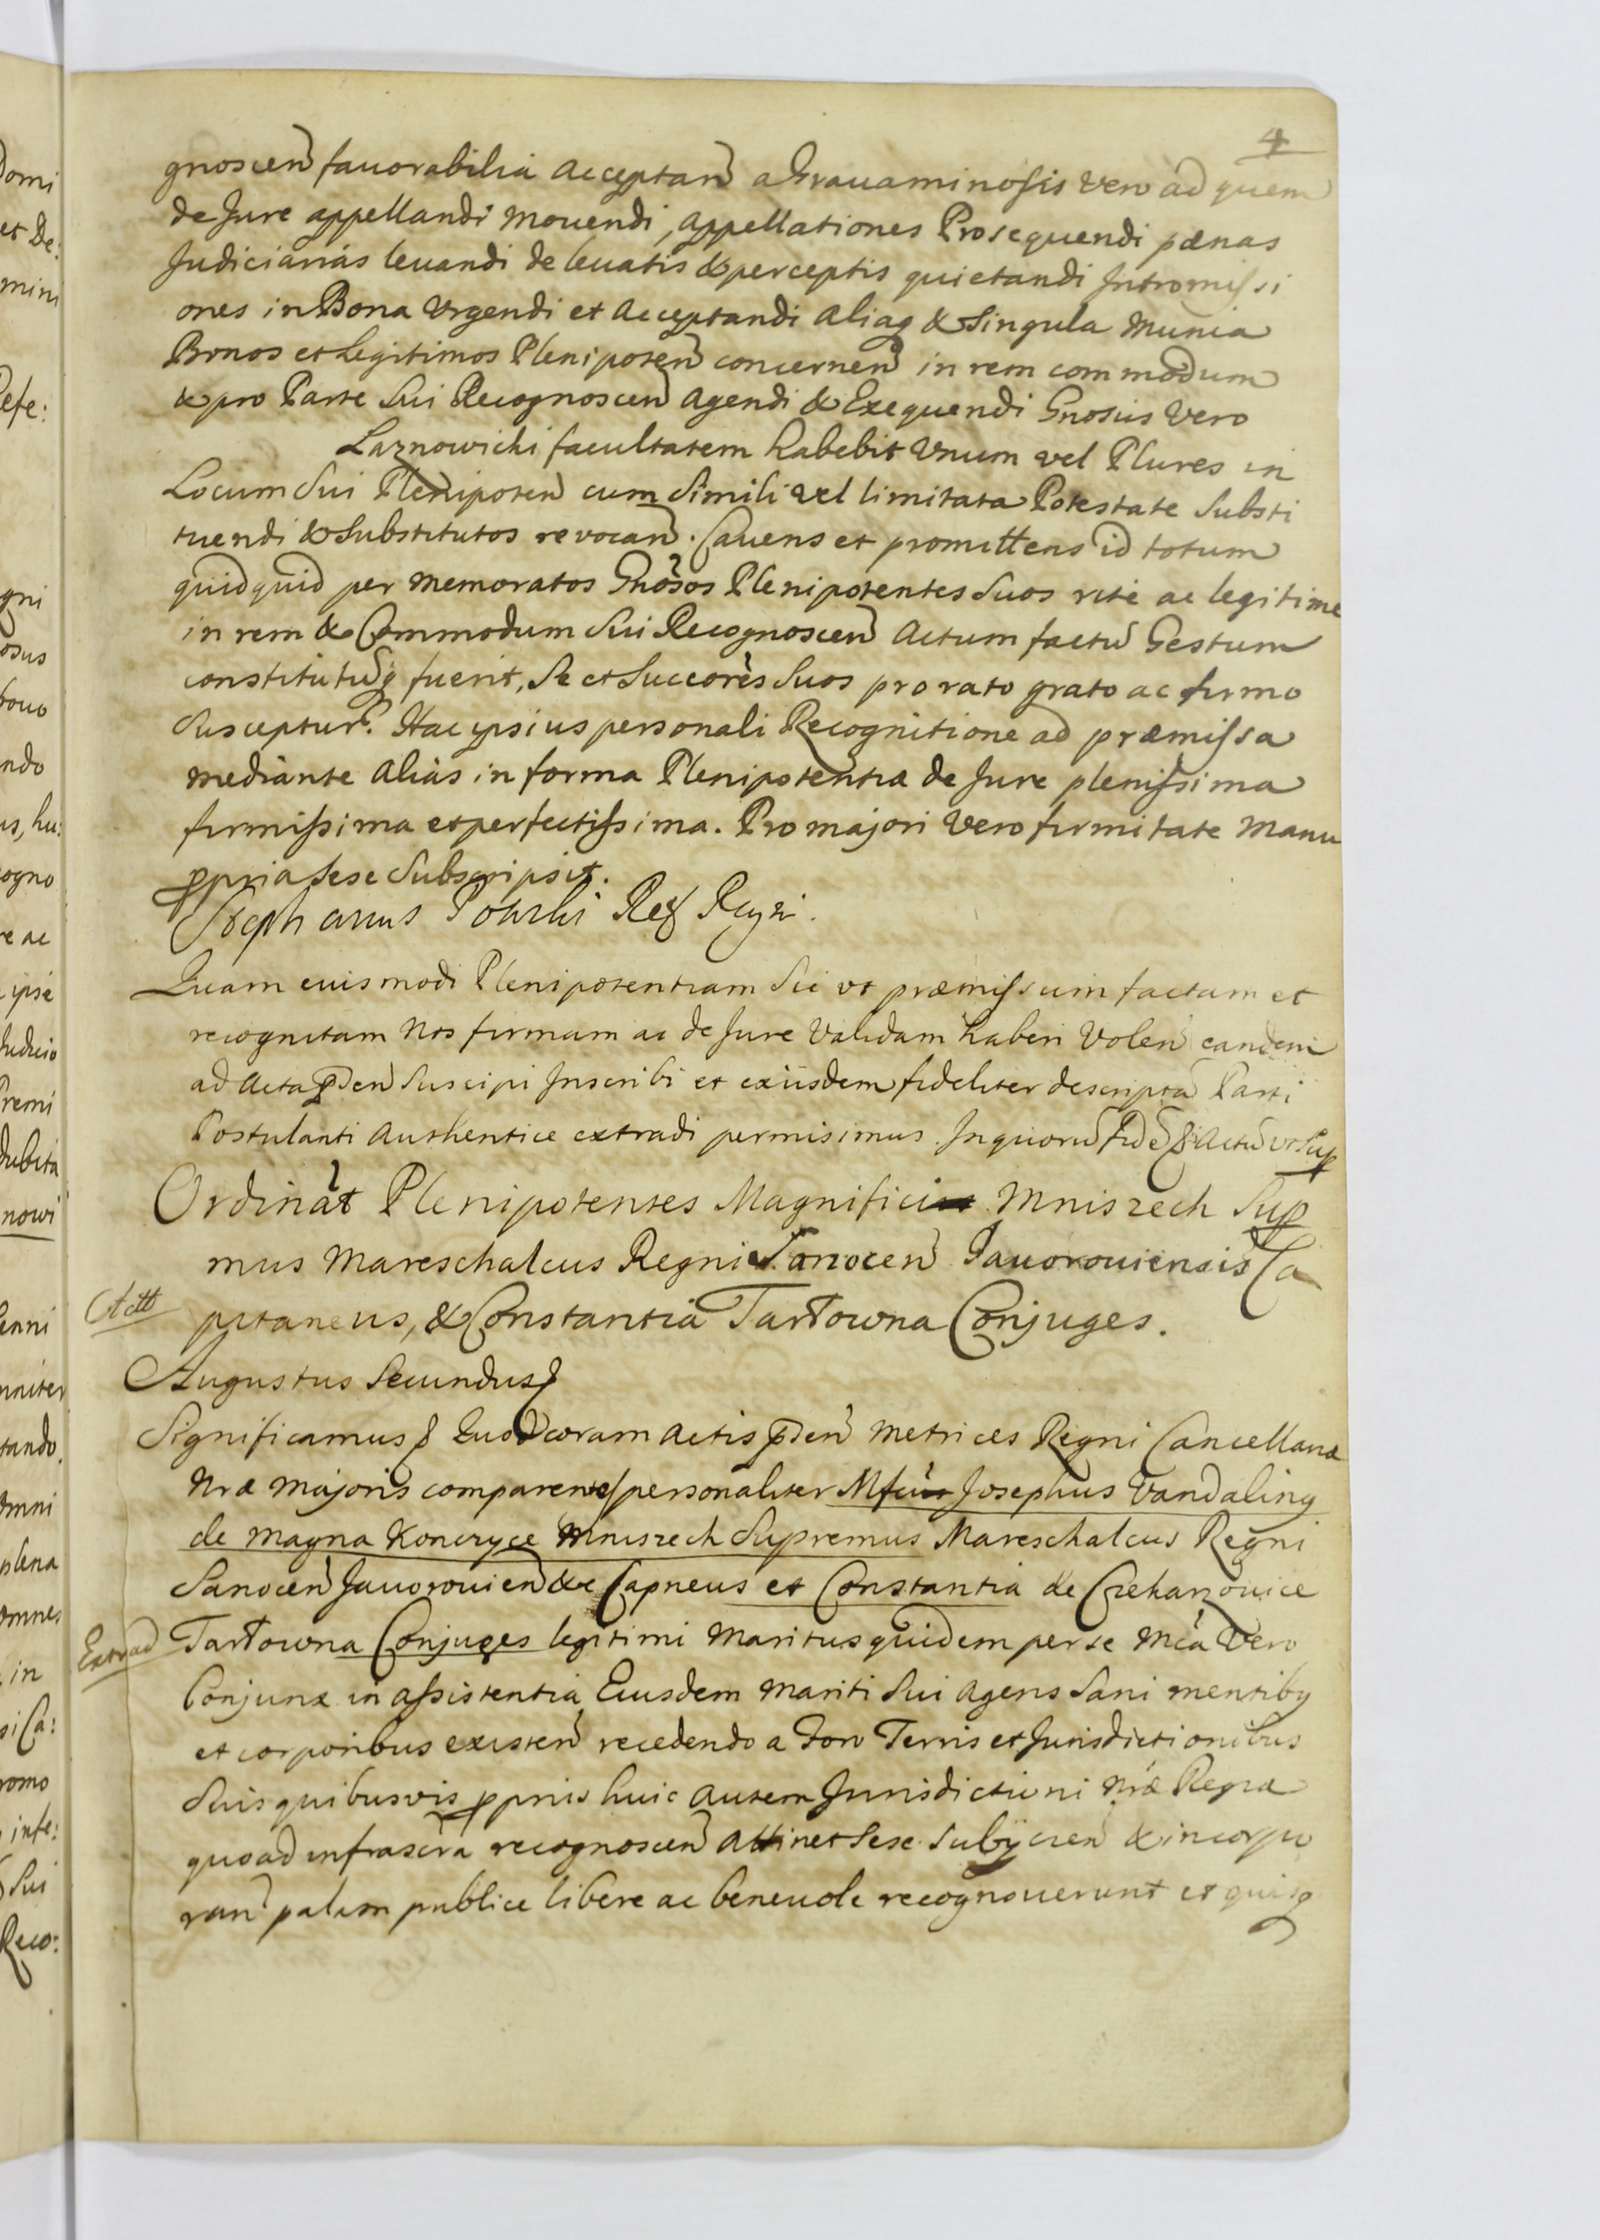 4
gnoscen favorabilia acceptan a Gravaminosis vero ad quem
de Jure appellandi movendi, appellationes Prosequendi pænas
Judiciarias levandi de levatis & perceptis quietandi Intromissi
ones in Bona Urgendi et acceptandi aliaq & singula munia
Bonos et legitimos Plenipoten concernen in rem commodum
& pro Parte sui Recognoscen agendi & Exequendi Gnosus vero
Laznowichi facultatem habebit unum vel Plures in
Locum sui Plenipoten cum simili vel limitata Potestate substi
tuendi & substitutos revocan. Cavens et promittens id totum
quidquid per memoratos Gnosos Plenipotentes suos rite ac legitime
in rem & Commodum sui Recognoscen actum factu Gestum
constitutuq fuerit, se et succores suos pro rato grato ac firmo
suscepturu. Hac ipsius personali Recognitione ad præmissa
mediante alias in forma Plenipotentiæ de Jure plenissima
firmissima et perfectissima. Pro majori vero firmitate manu
ppria sese subscripsit.
Stephanus Potuzki Ref Regni.
Quam euismodi Plenipotentiam sic ut præmissum factam et
recognitam nos firmam ac de Jure validam haberi volen eandem
ad acta pden suscipi Inscribi et exiisdem fideliter descripta Parti
Postulanti authentice extradi permisimus. In quoru fide & actu ut sup
Ordinat Plenipotentes Magnifici Mniszech Sup
mus Mareschalcus Regni Sanocen Javoroviensis Ca
Actt
pitaneus, & Constantia Tarłowna Conjuges.
Augustus Secundus &
Significamus & Quod coram actis pden metrices Regni Cancellariæ
Nræ majoris comparentes personaliter Mfcus Josephus Vandalinq
de magna Kończyce Mniszech Supremus Mareschalcus Regni
Sanocen Javorovien &c Capneus et Constantia de Czekarzovice
Extrad
Tarłowna Conjuges legitimi maritus quidem per se Mca vero
Conjunx in assistentia Eiusdem mariti sui agens sani mentibq
et corporibus existen recedendo a Foro Terris et Jurisdictionibus
suis quibusvis ppriis huic autem Jurisdictioni Nræ Regiæ
quoad infrascra recognoscen attinet sese subijcien & incorpo
ran palam publice libere ac benevole recognoverunt et quisq